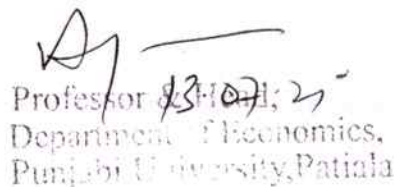 13.07.21
Professor & Head,
Department of Economics,
Punjabi University, Patiala